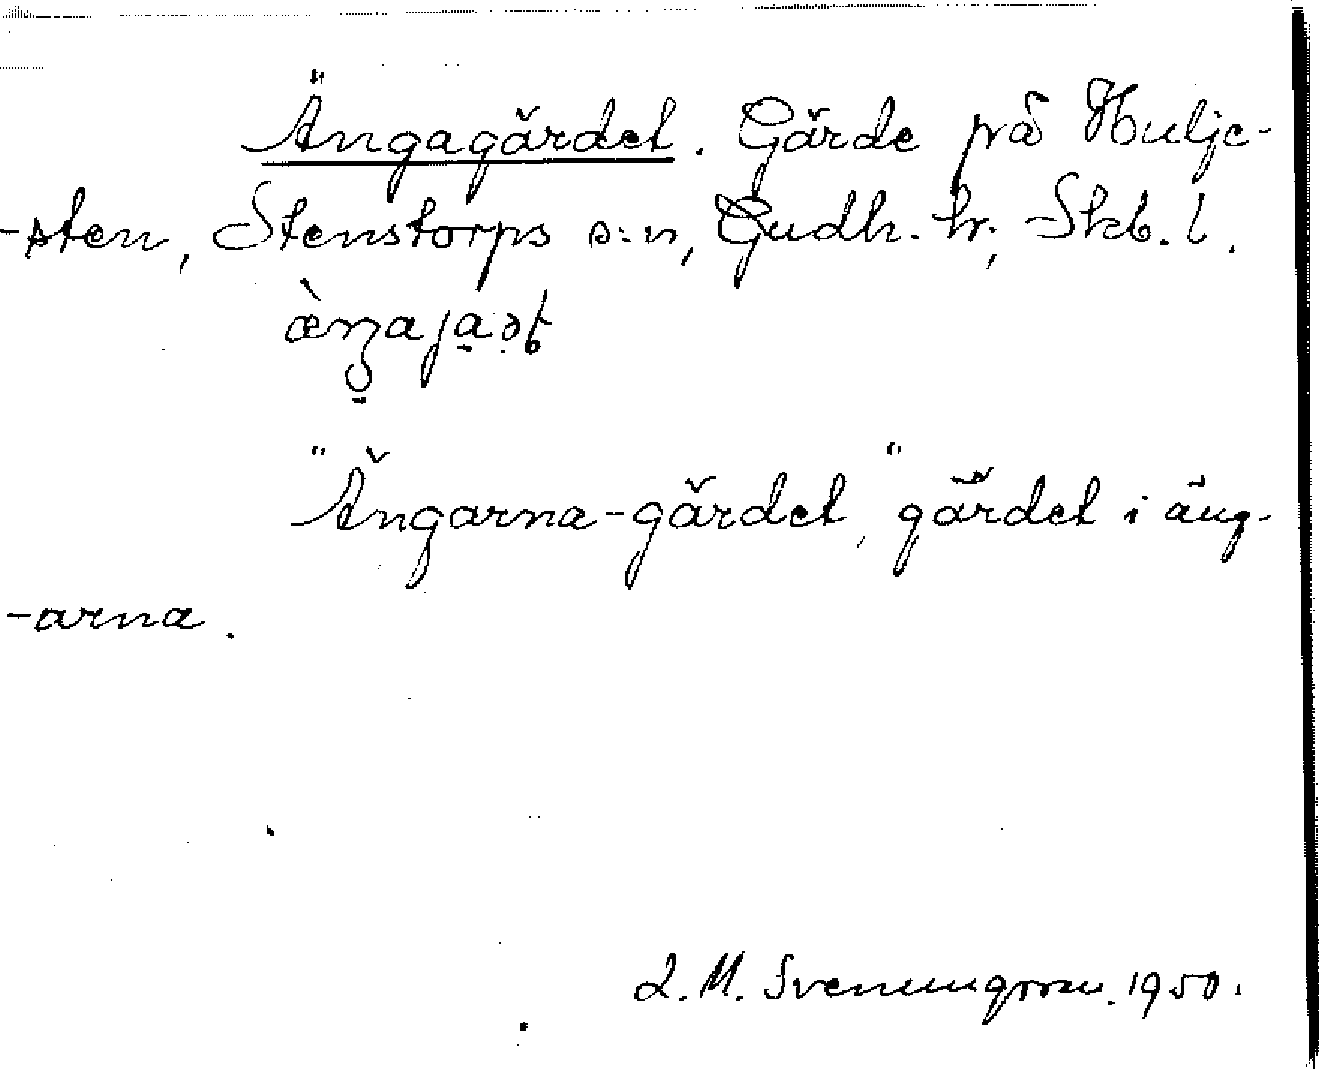 Ängagärdet. Gärde på Hulje-
-sten, Stenstorps s:n, Gudh. hr, Skb. l.
"Ängarna-gärdet", gärdet i äng-
-arna.
L. M. Svenungsson. 1950.